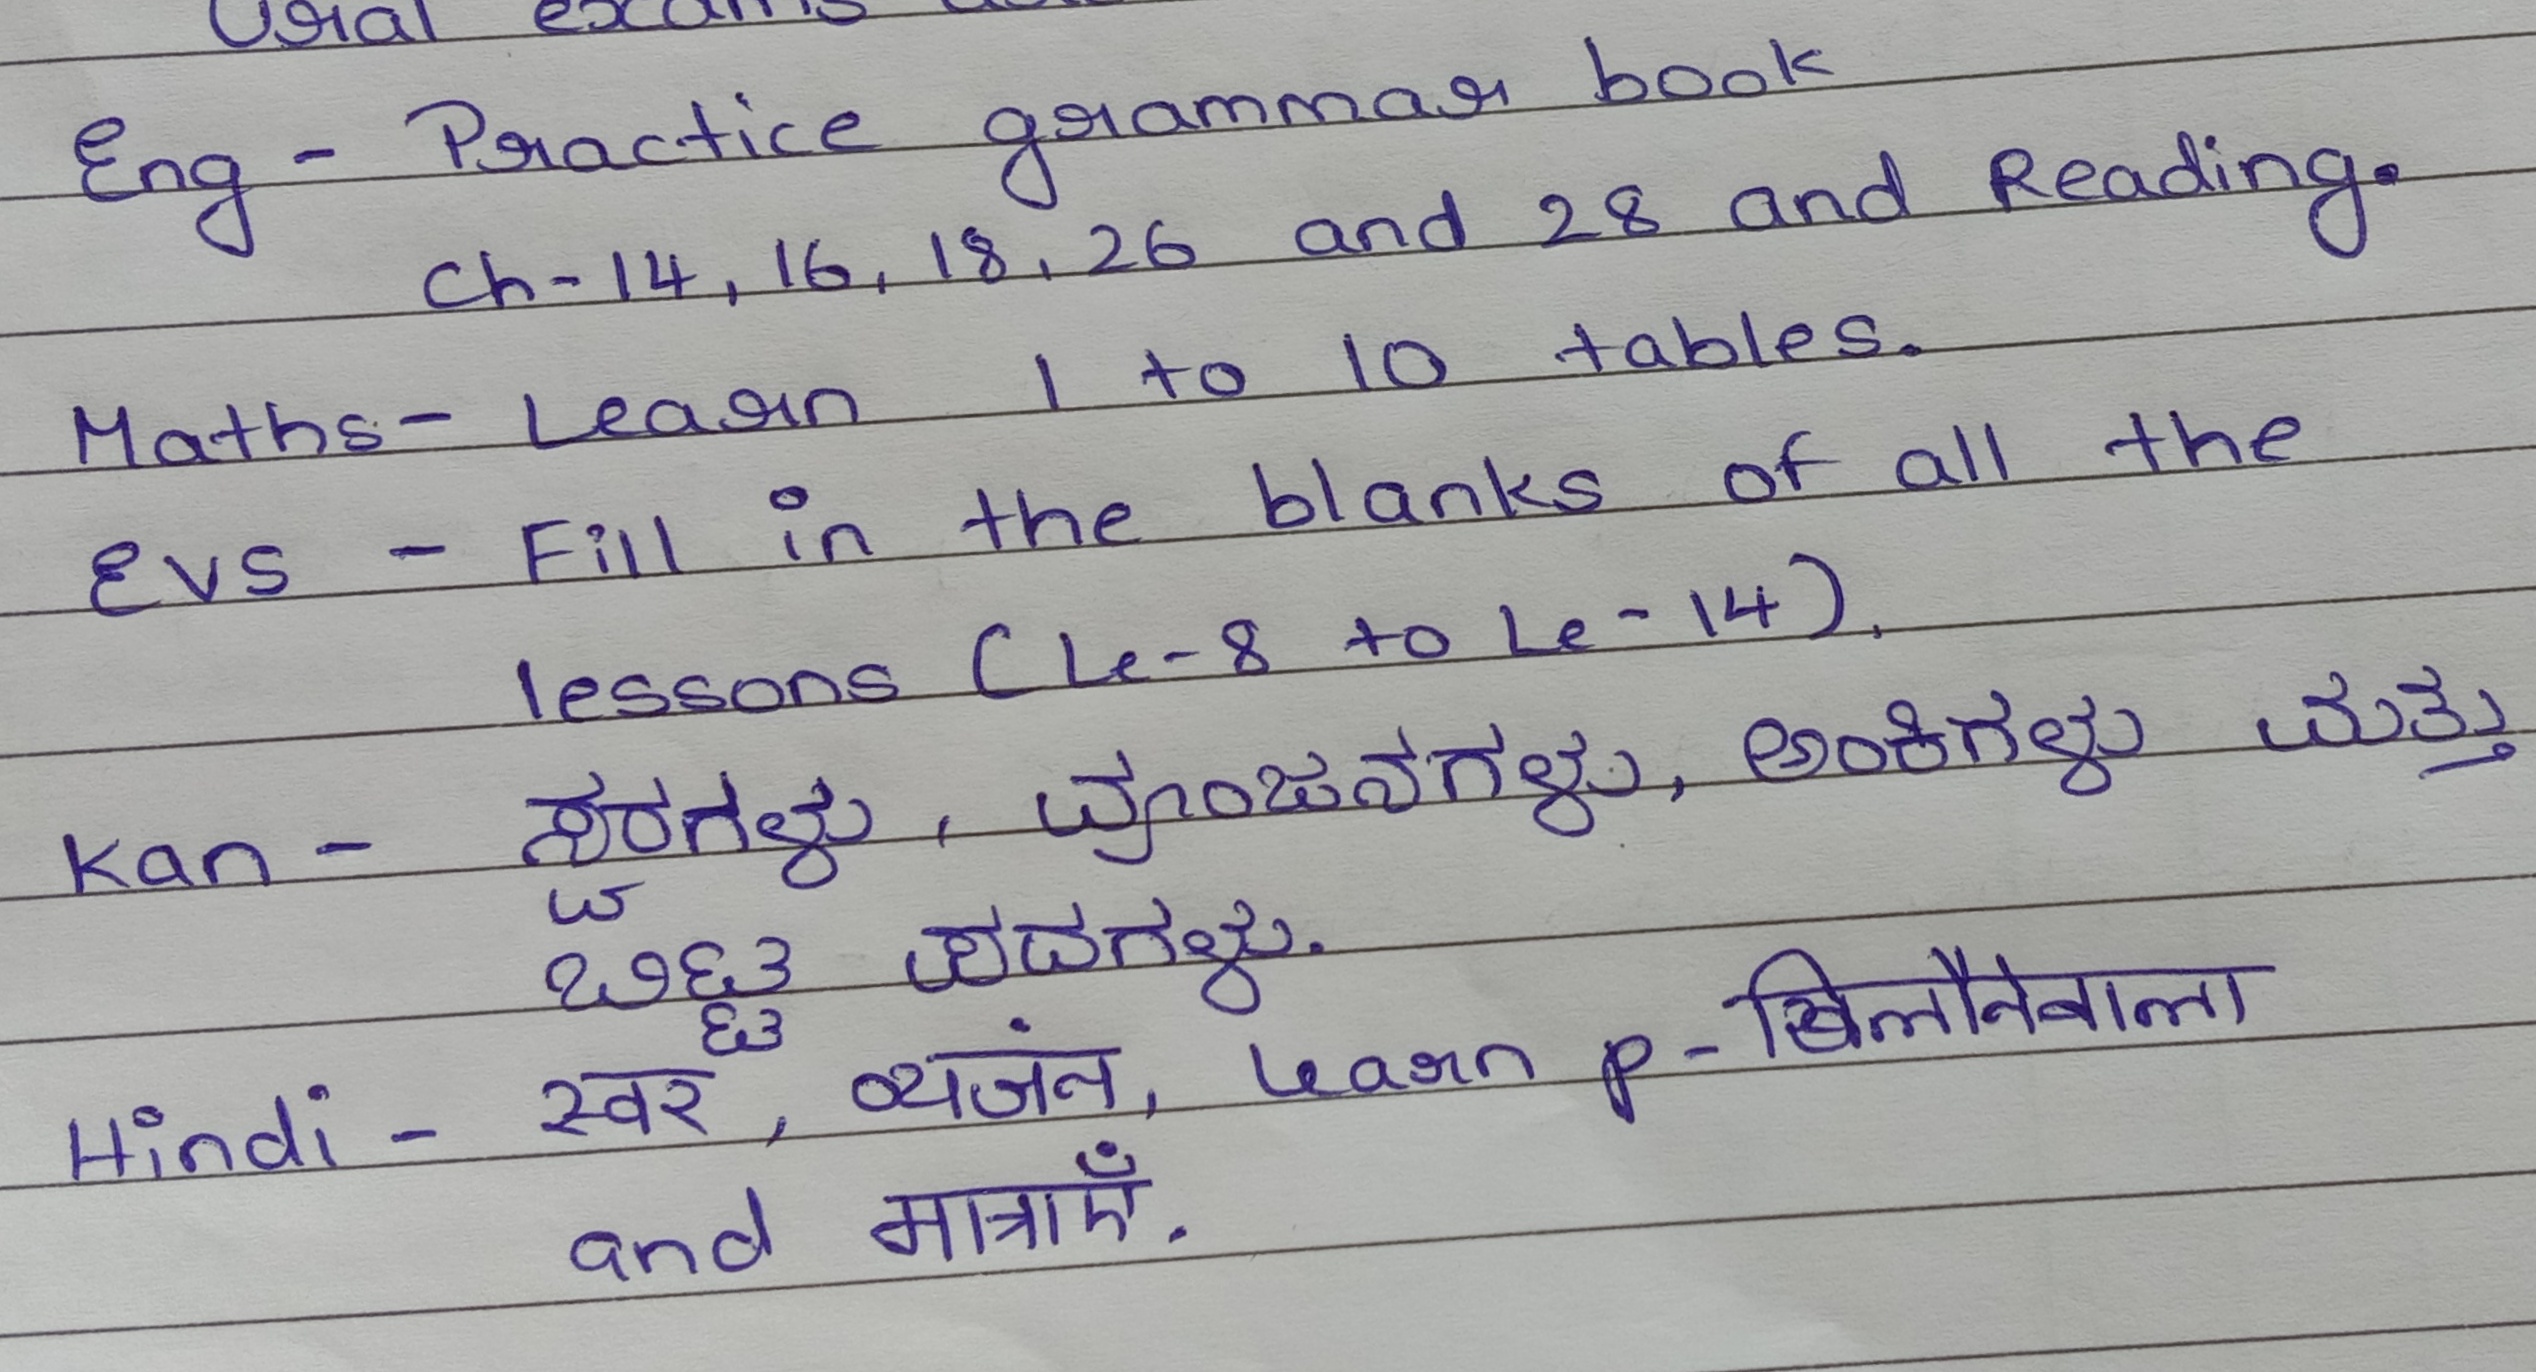 Oral exams
Eng - Practice grammar book
Ch-14, 16, 18, 26 and 28 and Reading.
Maths- Learn 1 to 10 tables.
EVS - Fill in the blanks of all the
lessons (Le-8 to Le-14).
Kan - ಸ್ವರಗಳು, ವ್ಯಂಜನಗಳು, ಅಂಕಿಗಳು ಮತ್ತು
ಬಿಟ್ಟ ಪದಗಳು.
Hindi - स्वर, व्यजंन, Learn p-खिलौनेवाला
and मात्राएँ.